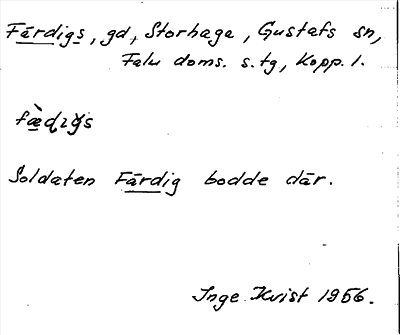 Färdigs, gd, Storhaga, Gustafs sn,
Falu doms. s. tg, Kopp. l.
fæ̀ɖɪgs
Soldaten Färdig bodde där.
Inge Kvist 1956.